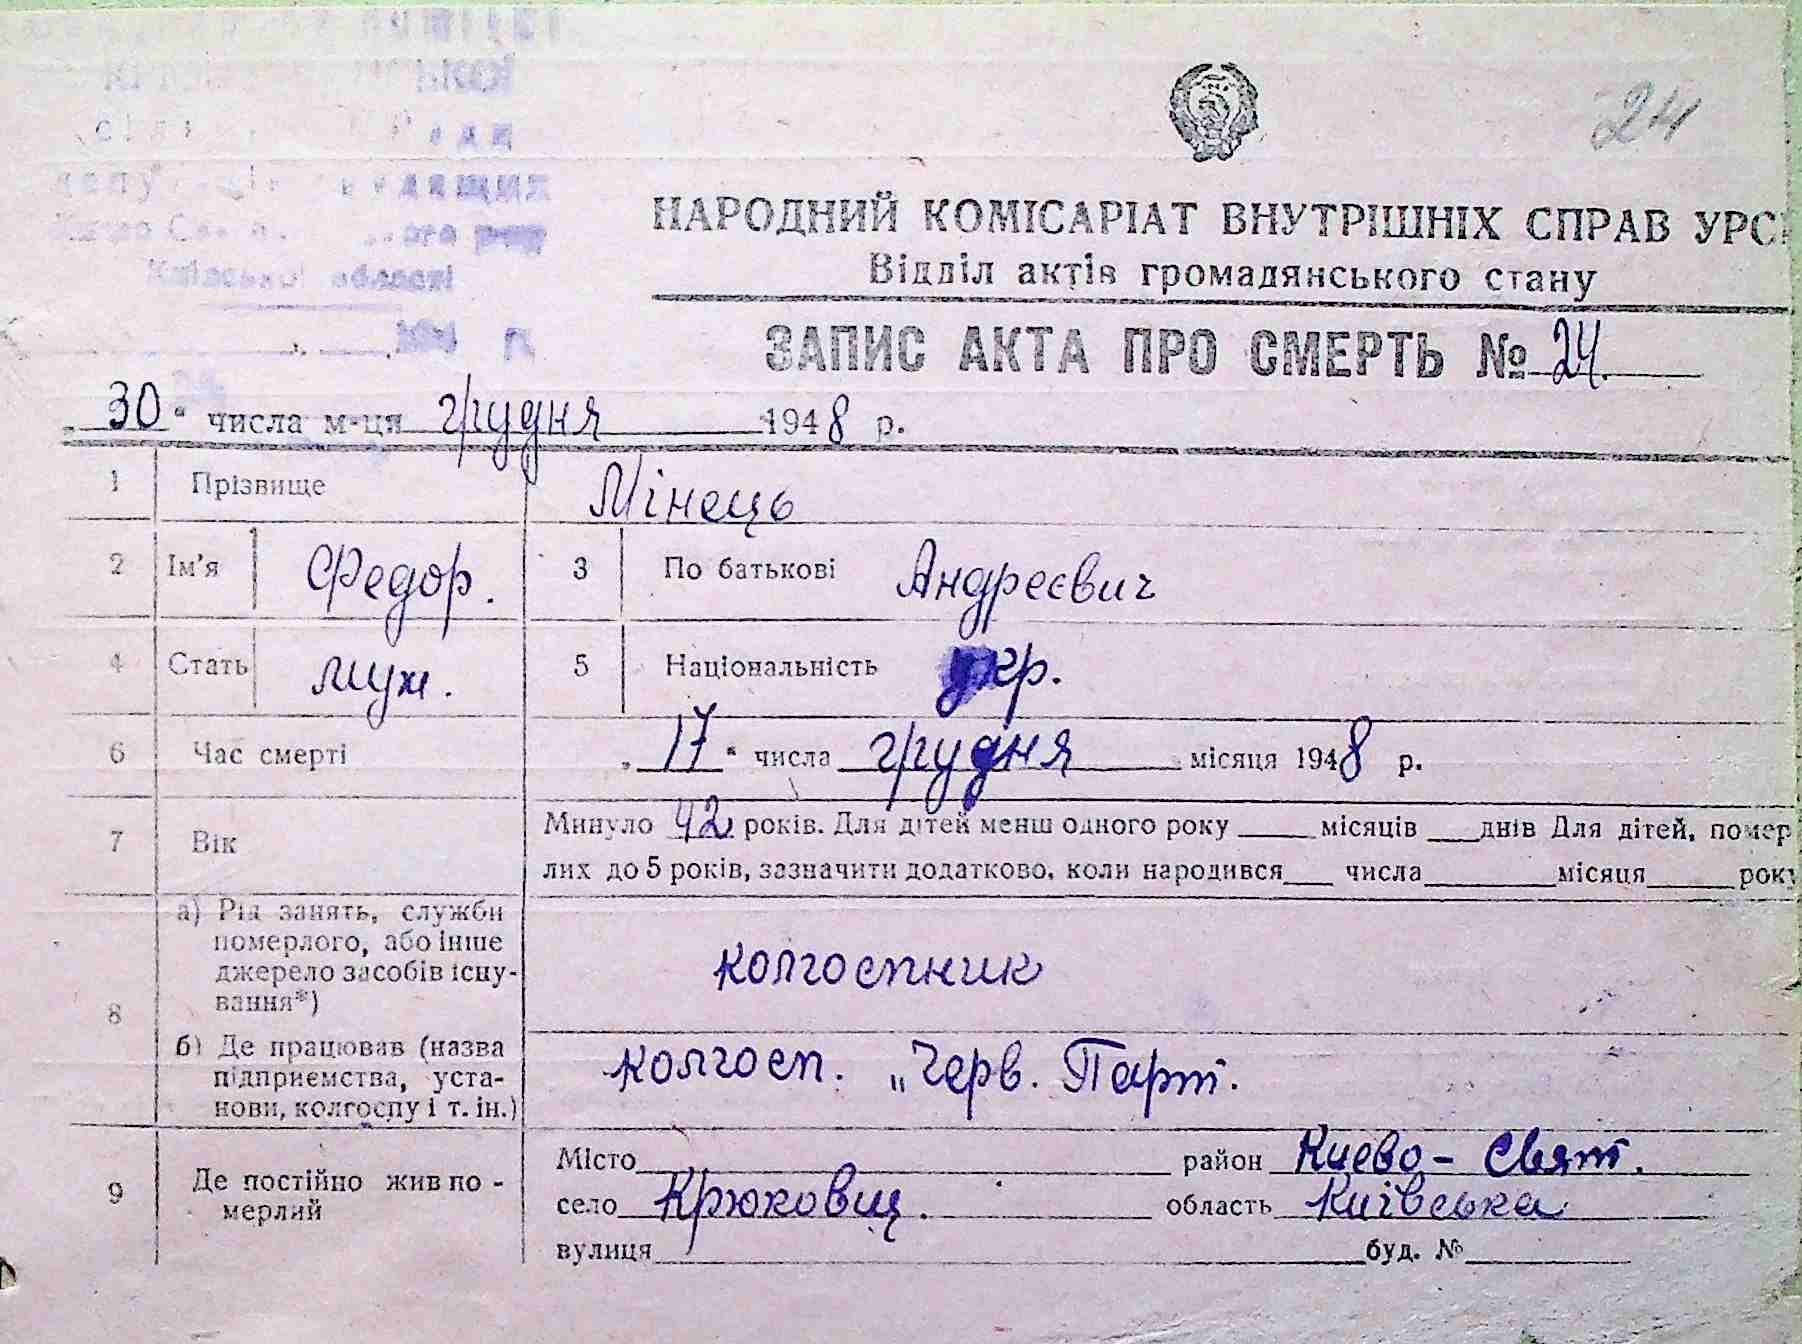 24
НАРОДНИЙ КОМІСАРІАТ ВНУТРІШНІХ СПРАВ УРСР
Відділ актів громадянського стану
Київської області
ЗАПИС АКТА ПРО СМЕРТЬ № 24.
„30“ числа м-ця грудня 1948 р.
1 Прізвище Мінець
2 Ім'я Федор. 3 По батькові Андреєвич
4 Стать муж. 5 Національність укр.
6 Час смерті „17“ числа грудня місяця 1948 р.
7 Вік Минуло 42 років. Для дітей менш одного року ____ місяців ____ днів Для дітей, помер
лих до 5 років, зазначити додатково, коли народився ____ числа ____ місяця ____ року
8 а) Рід занять, служби
померлого, або інше
джерело засобів існу-
вання*) колгоспник
б) Де працював (назва
підприємства, уста-
нови, колгоспу і т. ін.) колгосп. „Черв. Парт.
9 Де постійно жив по-
мерлий
Місто ____ район Києво-Свят.
село Крюковщ. область Київська
вулиця ____ буд. № ____